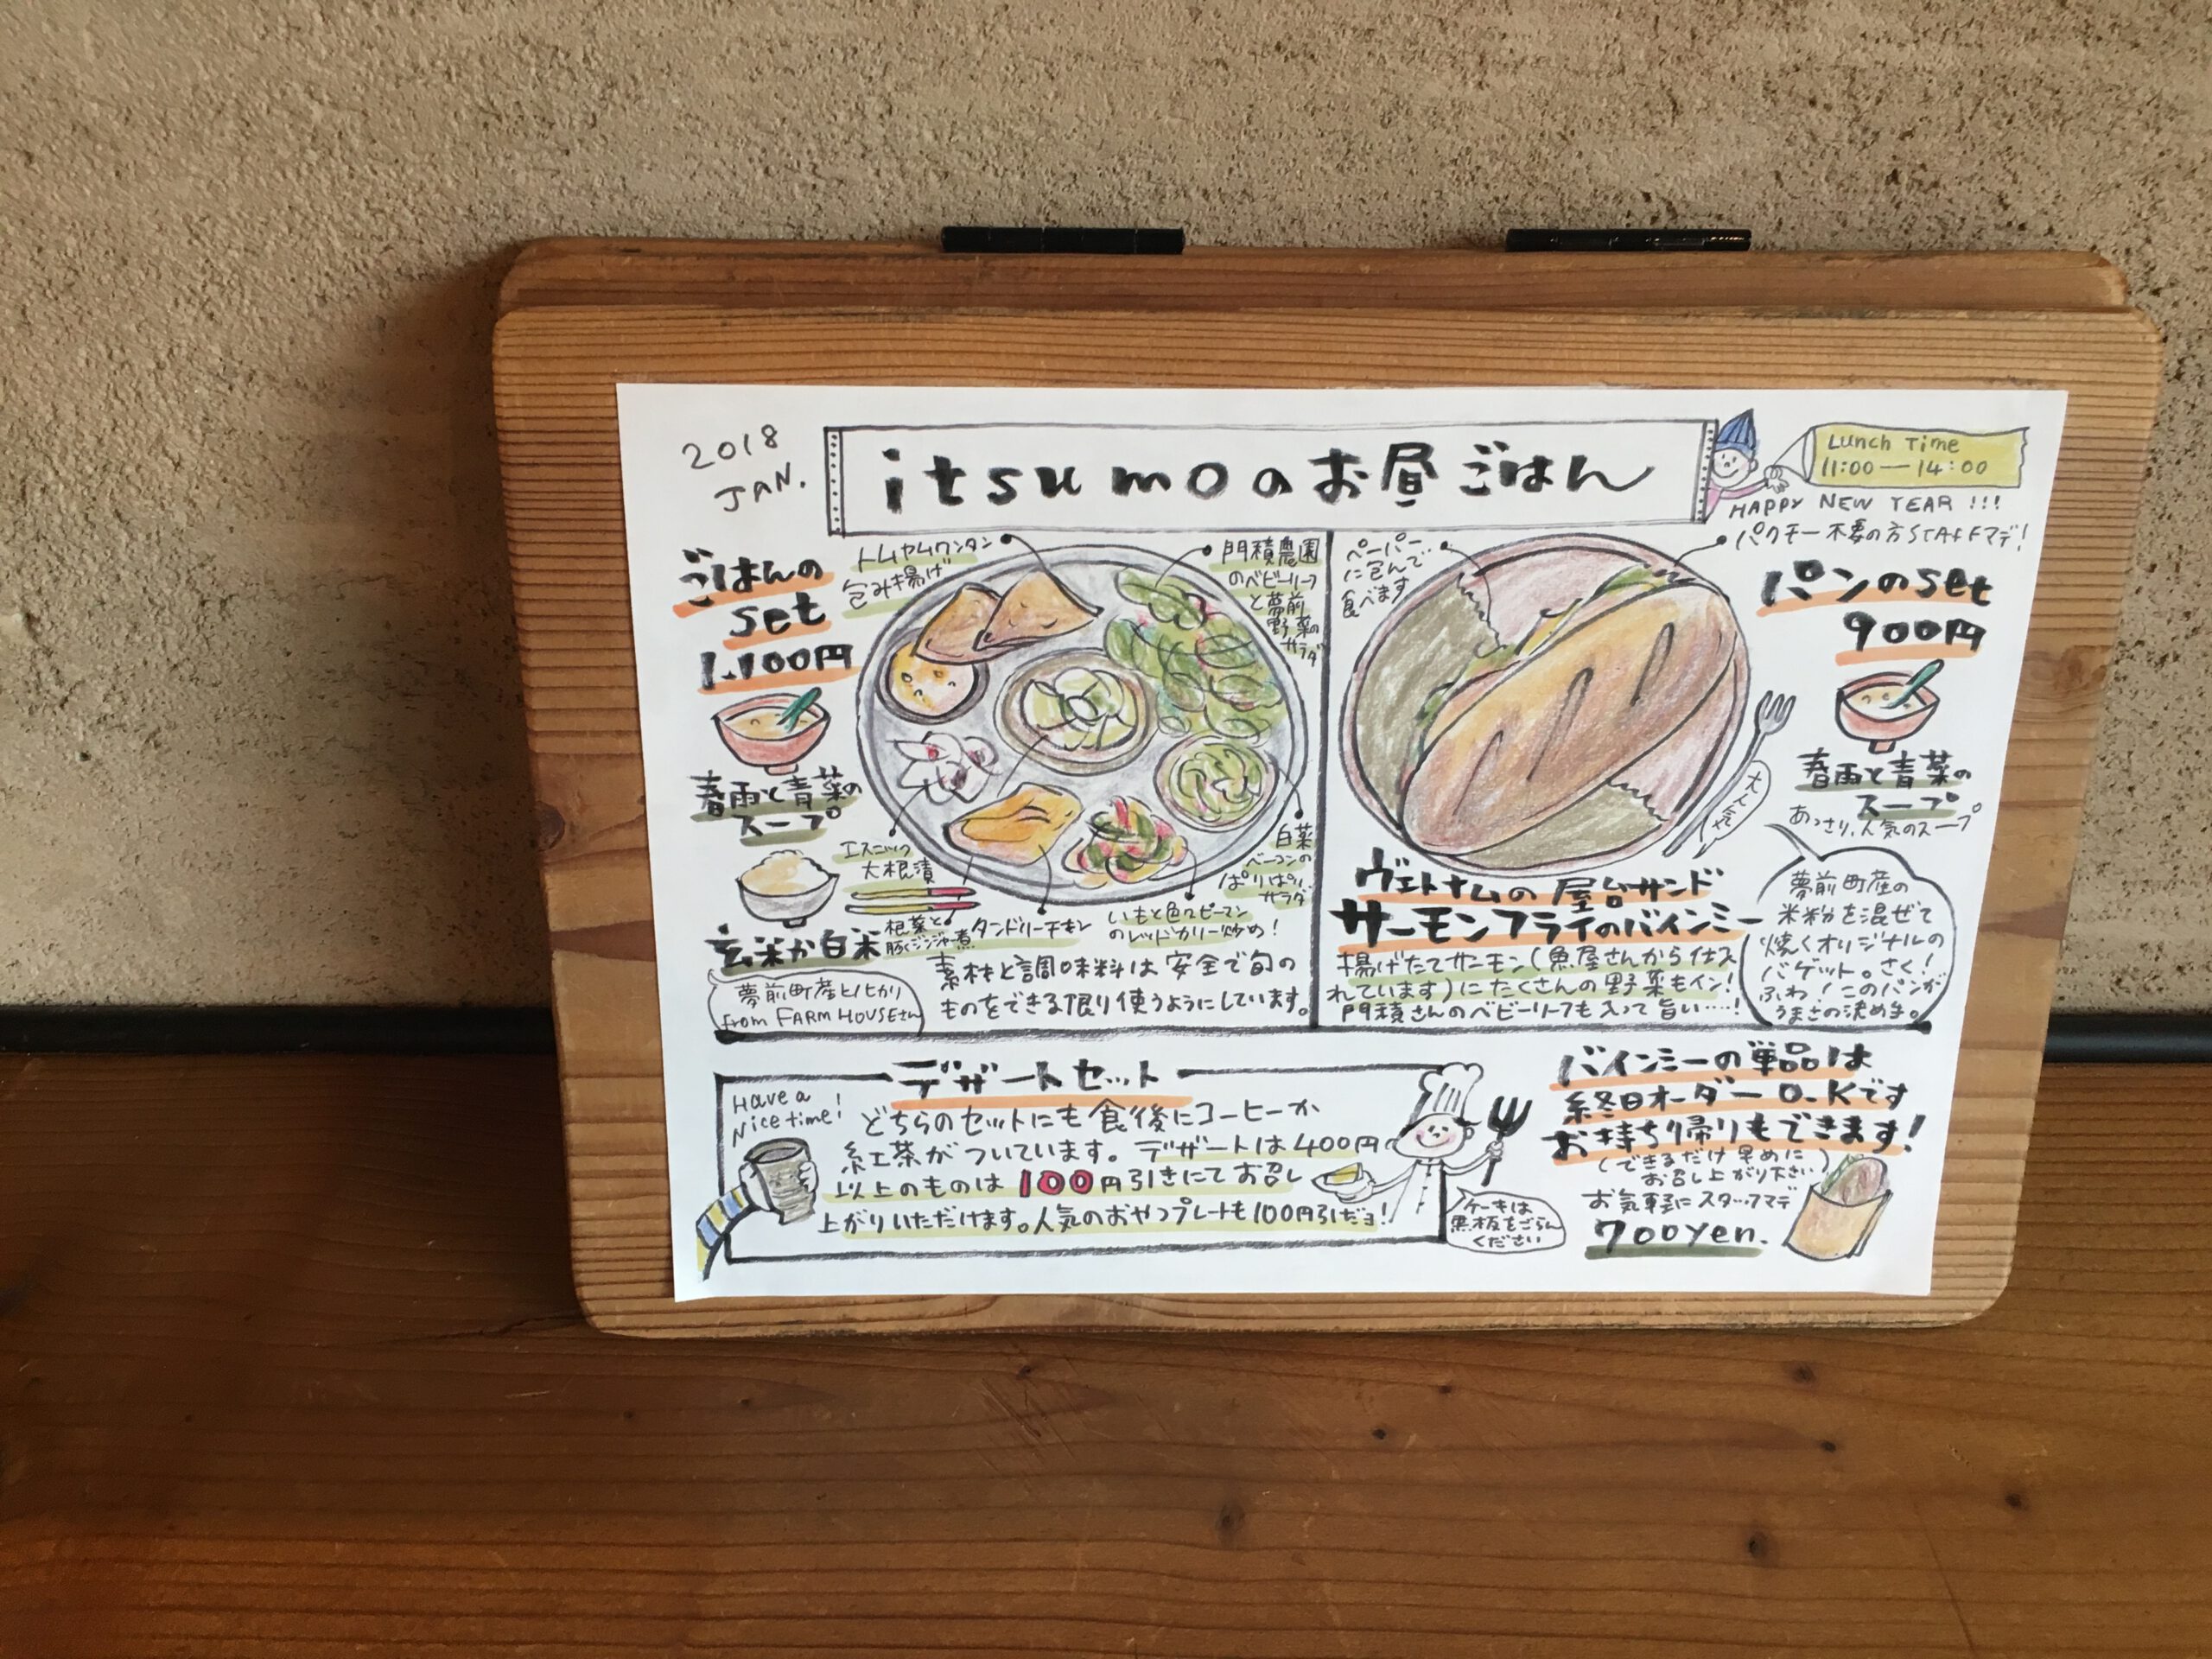 2018
JAN.
itsumoのお昼ごはん
Lunch Time
11:00—14:00
HAPPY NEW YEAR !!!
パクチー不要の方STAFFマデ!
ごはんの
set
1.100円
春雨と青菜の
スープ
玄米か白米
夢前町産ヒノヒカリ
from FARM HOUSEさん
トムヤムワンタン
包み揚げ
門積農園
のベビーリーフ
と夢前
野菜の
サラダ
エスニック
大根漬
根菜と
豚くジンジャー煮
タンドリーチキン
いもと色々ピーマン
のレッドカリー炒め!
白菜
ベーコンの
ぱりぱり
サラダ
素材と調味料は安全で旬の
ものをできる限り使うようにしています。
ペーパー
に包んで
食べます
パンのset
900円
春雨と青菜の
スープ
あっさり、人気のスープ
大人気
ヴェトナムの屋台サンド
サーモンフライのバインミー
揚げたてサーモン(魚屋さんから仕入
れています)にたくさんの野菜もイン!
門積さんのベビーリーフも入って旨い……!
夢前町産の
米粉を混ぜて
焼くオリジナルの
バゲット。さく!
ふわ!このパンが
うまさの決め手。
デザートセット
Have a
Nice time!
どちらのセットにも食後にコーヒーか
紅茶がついています。デザートは400円
以上のものは100円引きにてお召し
上がりいただけます。人気のおやつプレートも100円引だョ!
ケーキは
黒板をごらん
ください
バインミーの単品は
終日オーダーO.Kです
お持ち帰りもできます!
(できるだけ早めに
お召し上がり下さい)
お気軽にスタッフマデ
700yen.